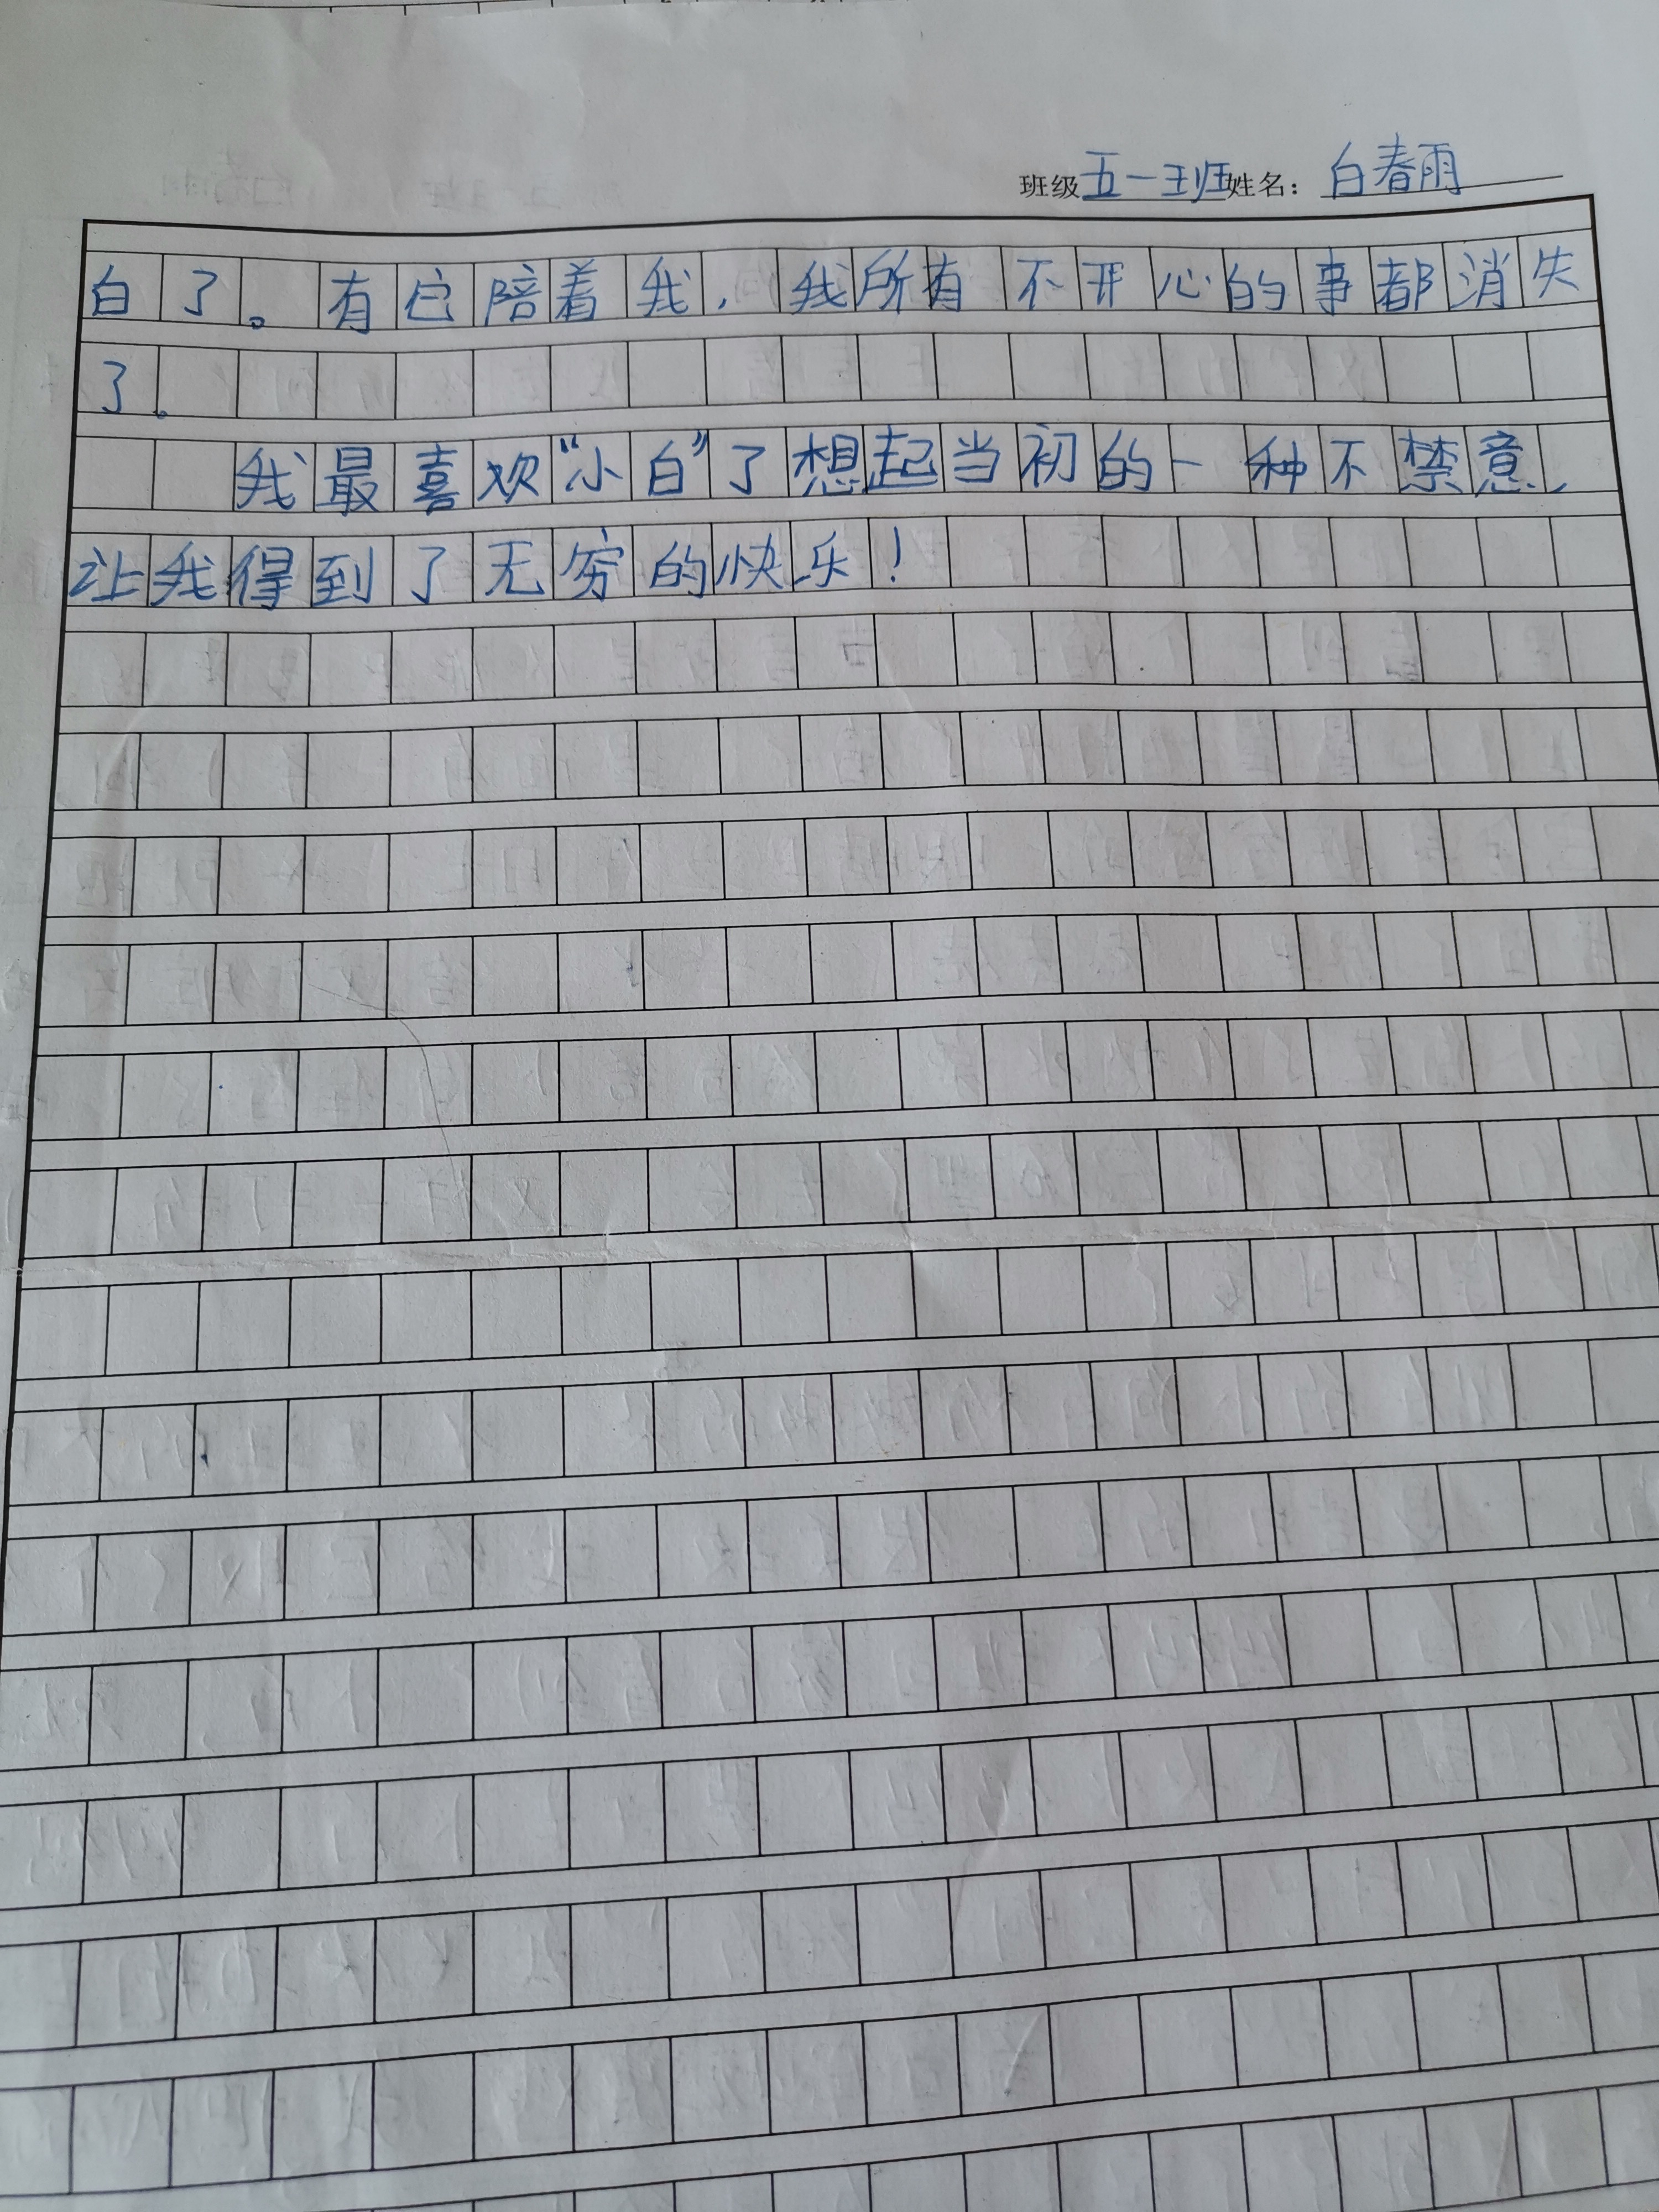 班级五一班姓名：白春雨
白了。有它陪着我，我所有不开心的事都消失
了。
我最喜欢“小白”了想起当初的一种不禁意，
让我得到了无穷的快乐！